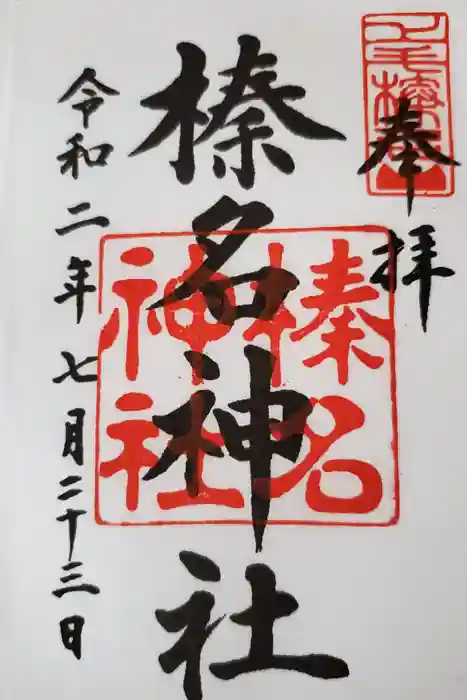 奉拝
榛名神社
令和二年七月二十三日
榛名
神社